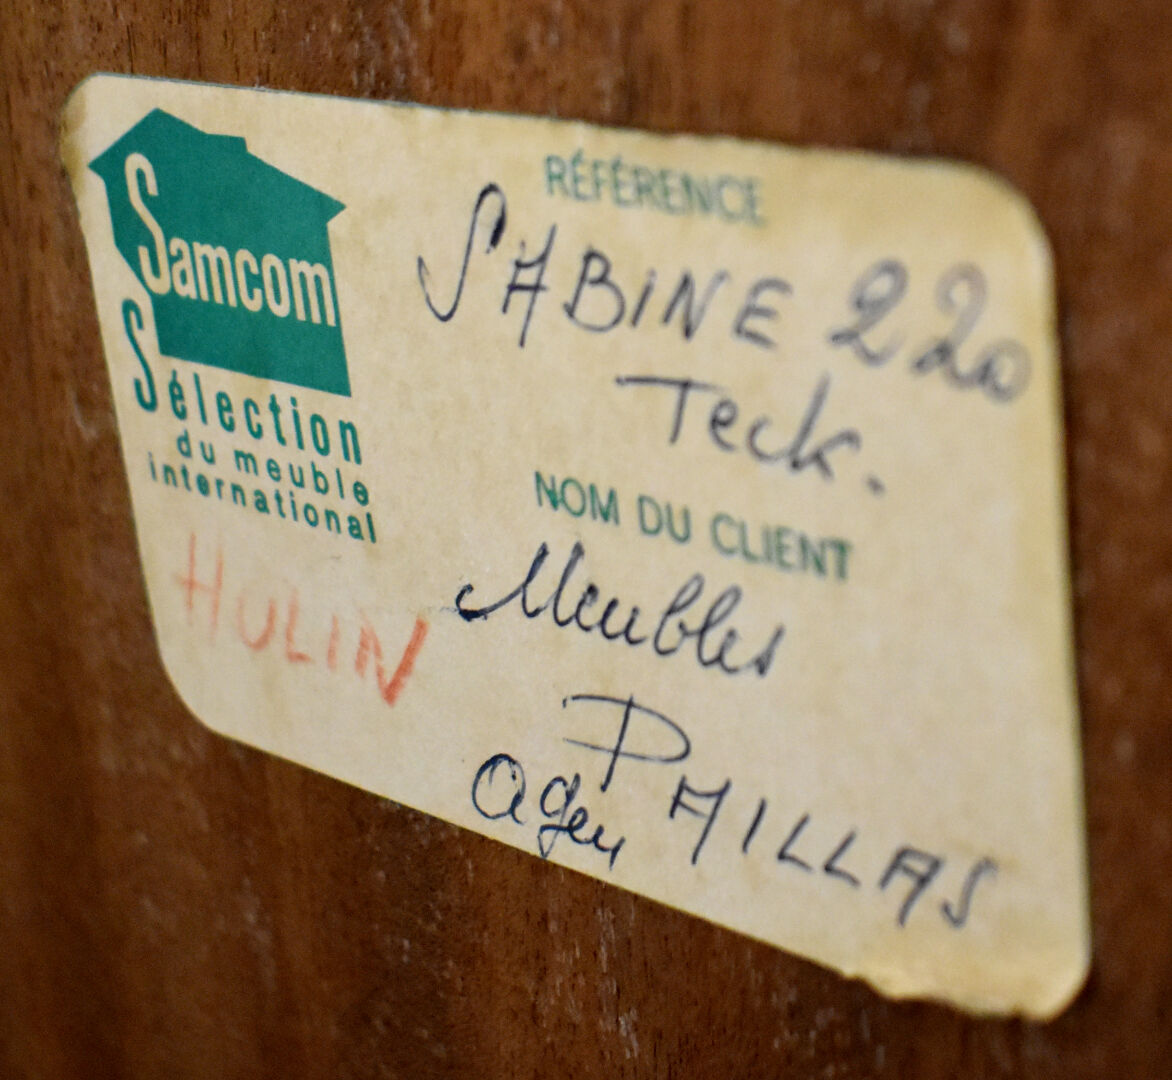 Samcom
Sélection
du meuble
international
HULIN
RÉFÉRENCE
SABINE 220
Teck.
NOM DU CLIENT
Meubles
PAILLAS
Agen